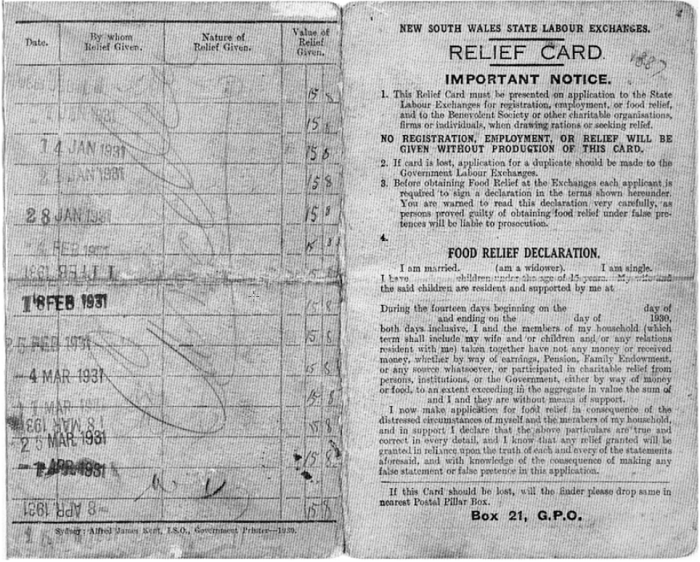 Date.
By whom Relief Given.
Nature of Relief Given.
Value of Relief Given.
15 8
15 8
14 JAN 1931 15 8
JAN 1931 15 8
28 JAN 1931 15 8
FEB 15 8
11 FEB 1931 15 8
18 FEB 1931 15 8
25 FEB 1931 15 8
-4 MAR 1931 15 8
MAR 1931 15 8
18 MAR 1931 15 8
25 MAR 1931
APR 1931 15 8
-8 APR 1931 15 8
Sydney: Alfred James Kent, I.S.O., Government Printer—1930.
NEW SOUTH WALES STATE LABOUR EXCHANGES.
RELIEF CARD.
IMPORTANT NOTICE.
1. This Relief Card must be presented on application to the State
Labour Exchanges for registration, employment, or food relief,
and to the Benevolent Society or other charitable organisations,
firms or individuals, when drawing rations or seeking relief.
NO REGISTRATION, EMPLOYMENT, OR RELIEF WILL BE
GIVEN WITHOUT PRODUCTION OF THIS CARD.
2. If card is lost, application for a duplicate should be made to the
Government Labour Exchanges.
3. Before obtaining Food Relief at the Exchanges each applicant is
required to sign a declaration in the terms shown hereunder.
You are warned to read this declaration very carefully, as
persons proved guilty of obtaining food relief under false pre-
tences will be liable to prosecution.
4.
FOOD RELIEF DECLARATION.
I am married. (am a widower). I am single.
I have children under the age of 15 years. My wife and
the said children are resident and supported by me at
During the fourteen days beginning on the day of
and ending on the day of 1930,
both days inclusive, I and the members of my household (which
term shall include my wife and/or children and/or any relations
resident with me) taken together have not any money or received
money, whether by way of earnings, Pension, Family Endowment,
or any source whatsoever, or participated in charitable relief from
persons, institutions, or the Government, either by way of money
or food, to an extent exceeding in the aggregate in value the sum of
and I and they are without means of support.
I now make application for food relief in consequence of the
distressed circumstances of myself and the members of my household,
and in support I declare that the above particulars are true and
correct in every detail, and I know that any relief granted will be
granted in reliance upon the truth of each and every of the statements
aforesaid, and with knowledge of the consequence of making any
false statement or false pretence in this application.
If this Card should be lost, will the finder please drop same in
nearest Postal Pillar Box.
Box 21, G.P.O.